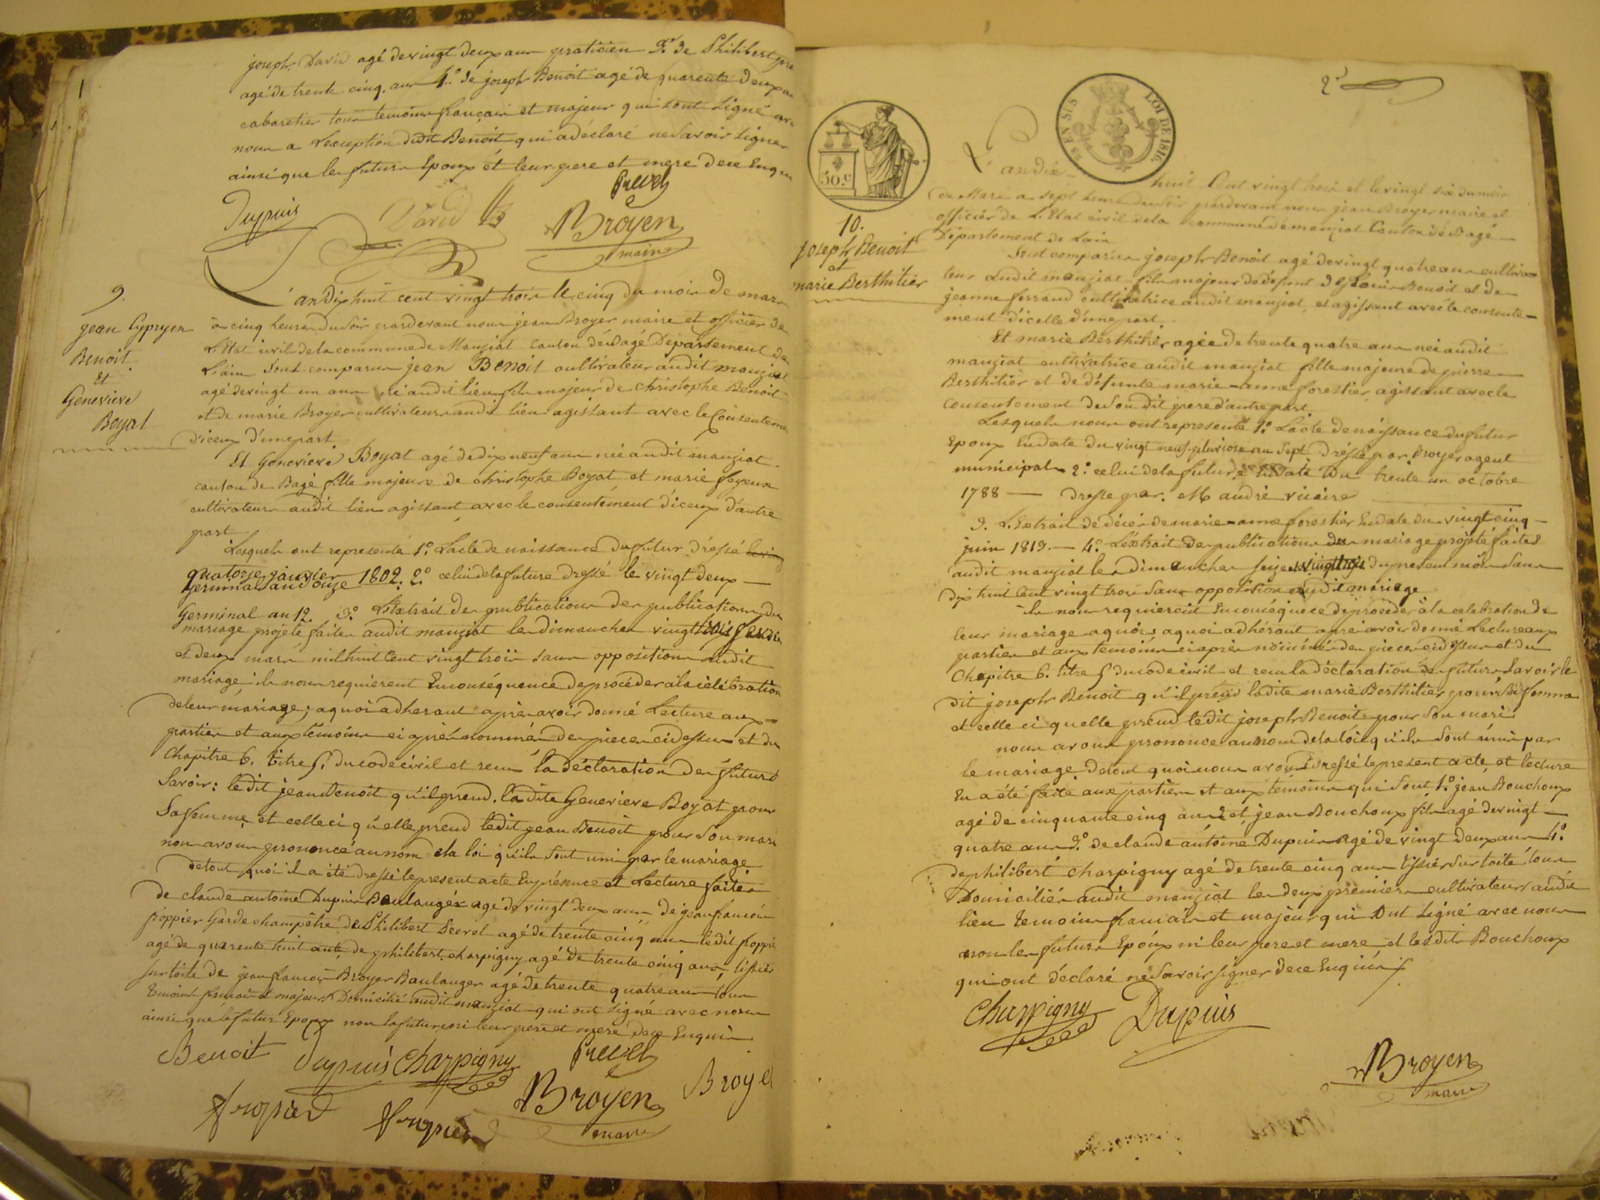 joseph David agé de vingt deux ans praticien 3.º de Philibert
agé de trente cinq ans 4.º de joseph Benoit agé de quarente deux
cabaretier tous temoins français et majeur qui ont signé
nous a l'exception dudit Benoit qui a déclaré ne savoir signer
ainsi que les futurs Epoux et leur pere et mere de ce Enquis
Dupuis
Prevel
David
Broyer
maire
9.
jean Cypryen
Benoit.
et
Genevieve
Boyat
L'an dix huit cent vingt trois le cinq du mois de mars
a cinq heures du soir pardevant nous jean Broyer maire et officier de
L'Etat civil de la commune de Manziat canton de Bagé Département de
L'ain sont comparus jean Benoit cultivateur audit manziat
agé de vingt un ans né audit lieu fils majeur de christophe Benoit
et de marie Broyer cultivateurs audit lieu agissant avec le Consenteme
d'iceux d'une part
Et Genevieve Boyat agé de dix neuf ans née audit manziat
canton de Bagé fille majeure de christophe Boyat et marie
cultivateurs audit lieu agissant avec le consentement d'iceux d'autre
part
Lesquels ont representé 1.º L'acte de naissance du futur dressé
quatorze janvier 1802. 2.º celui de la future dressé le vingt deux
Germinal an 12. 3.º L'Extrait de publications des publications du
mariage projeté faites audit manziat les dimanches vingt trois
et deux mars mil huit cent vingt trois sans opposition audit
mariage ils nous requierent En conséquence de procéder a la célébration
de leur mariage, a quoi adherant après avoir donné Lecture aux
parties et aux témoins ci après nommés des pieces ci dessus et du
Chapitre 6. titre 5. du code civil et reçu la déclaration des futurs
Savoir: le dit jean Benoit qu'il prend la dite Genevieve Boyat pour
Sa femme et celle ci qu'elle prend ledit jean Benoit pour son mari
nous avons prononcé au nom de la loi qu'ils sont unis par le mariage
de tout quoi il a été dressé le present acte En présence et Lecture faite
de claude antoine Dupuis Boulanger agé de vingt deux ans de jean françois
poppier Garde champêtre de Philibert Prevel agé de trente cinq ans ledit poppier
agé de quarente huit ans, de philibert charpigny agé de trente cinq ans tissier
sur toile de jean françois Broyer Boulanger agé de trente quatre ans tous
temoins français et majeurs Domicilié audit manziat qui ont signé avec nous
ainsi que le futur Epoux non la future ni leur pere et mere de ce Enquis
Benoit Dupuis Charpigny Prevel
Broyer
maire
Broyer
2.e
EN SUS LOI DE 1816
50.c
10.
joseph Benoit
et
marie Berthilier
L'an dix huit Cent vingt trois et le vingt six du mois
de Mars a sept heures du soir pardevant nous jean Broyer maire et
officier de L'Etat civil de la commune de manziat Canton de Bagé
Département de Lain
Sont comparus joseph Benoit agé de vingt quatre ans cultiva
teur audit manziat fils majeur de défunt Louis Benoit et de
jeanne ferrand cultivatrice audit manziat, et agissant avec le consente
ment d'icelle d'une part
Et marie Berthilier agée de trente quatre ans née audit
manziat cultivatrice audit manziat fille majeure de pierre
Berthilier et de défunte marie anne forestier agissant avec le
consentement de son dit pere d'autre part
Lesquels nous ont representé 1.º L'acte de naissance du futur
Epoux En date du vingt neuf pluviose an Sept dressé par Broyer agent
municipal 2.º celui de la future En date du trente un octobre
1788 — Dressé par M andré vicaire
3. L'Extrait de décès de marie anne forestier En date du vingt cinq
juin 1813. — 4.º L'extrait de publications du mariage projeté faites
audit manziat les dimanches seize vingt trois du present mois dans
dix huit Cent vingt trois Sans opposition audit mariage
ils nous requierent En conséquence de procéder a la celebration de
leur mariage a quoi a quoi adhérant après avoir donné Lecture aux
parties et aux témoins ci après nommés des pieces ci dessus et du
Chapitre 6. titre 5 du code civil et reçu la déclaration des futurs Savoir le
dit joseph Benoit qu'il prend ladite marie Berthilier pour sa femme
et celle ci quelle prend ledit joseph Benoit pour son mari
nous avons prononcé au nom de la loi qu'ils sont unis par
le mariage. De tout quoi nous avons dressé le present acte et lecture
En a été faite aux parties et aux témoins qui sont 1.º jean Bouchoux
agé de cinquante cinq ans 2 et jean Bouchoux fils agé de vingt
quatre ans 3.º de claude antoine Dupuis agé de vingt deux ans 4.º
de philibert charpigny agé de trente cinq ans tissier sur toile tous
Domiciliés audit manziat les deux premiers cultivateurs audit
lieu temoins français et majeur qui ont signé avec nous
non les futurs Epoux ni leur pere et mere et lesdits Bouchoux
qui ont déclaré ne savoir signer de ce Enquis
Charpigny Dupuis
Broyer
maire